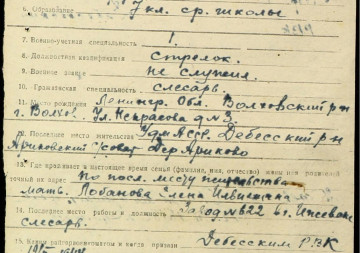 6. Образование 7 кл. ср. школы
7. Военно-учетная специальность 1.
8. Должностная квалификация стрелок.
9. Военное звание не служил.
10. Гражданская специальность слесарь.
11. Место рождения Ленингр. Обл. Волховский р-н
г. Волхов. Ул. Некрасова д № 3.
12. Последнее место жительства Удм АССР. Дебесский р-н
Ариковский с/совет Дер Ариково
13. Где проживает в настоящее время семья (фамилия, имя, отчество) жены или родителей
точный их адрес По посл. месту жительства
мать. Лобанова Елена
14. Последнее место работы и должность Завод № 622 в г. Ижевске
слесарь.
15. Каким райгорвоенкоматом и когда призван Дебесским РВК